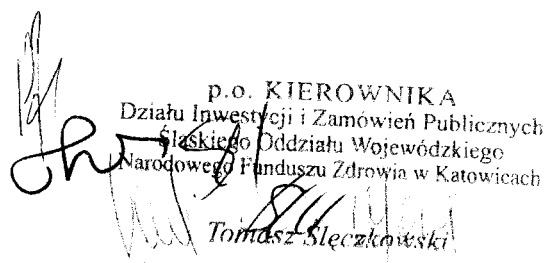 p.o. KIEROWNIKA
Działu Inwestycji i Zamówień Publicznych
Śląskiego Oddziału Wojewódzkiego
Narodowego Funduszu Zdrowia w Katowicach
Tomasz Ślęczkowski